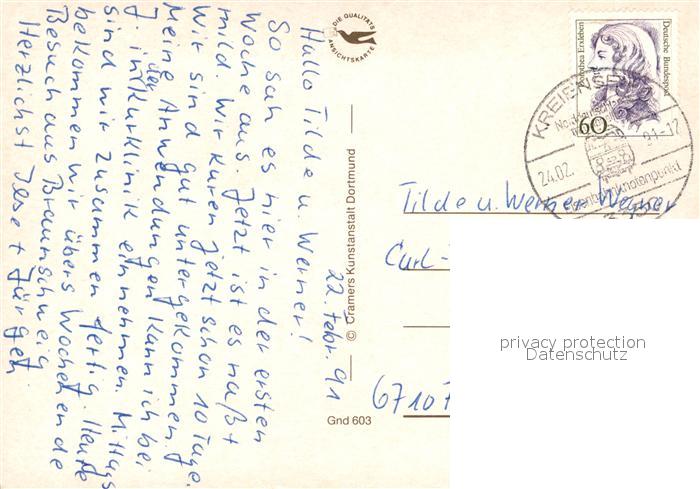 Hallo Tilde u. Werner!
22. Febr. 91
So sah es hier in der ersten
Woche aus. Jetzt ist es naßt
mild. Wir kuren jetzt schon 10 Tage.
Wir sind gut untergekommen.
Meine Anwendungen kann ich bei
J. in der Kurklinik einnehmen. Mittags
sind wir zusammen fertig. Heute
bekommen wir übers Wochenende
Besuch aus Braunschweig
Herzlichst Ilse + Jürgen
DIE QUALITÄTS
ANSICHTSKARTE
© Cramers Kunstanstalt Dortmund
Gnd 603
Dorothea Erxleben
Deutsche Bundespost
60
KREIENSEN
24.02.
91-12
Eisenbahnknotenpunkt
Tilde u. Werner Wegner
Carl-
6710 F
privacy protection
Datenschutz